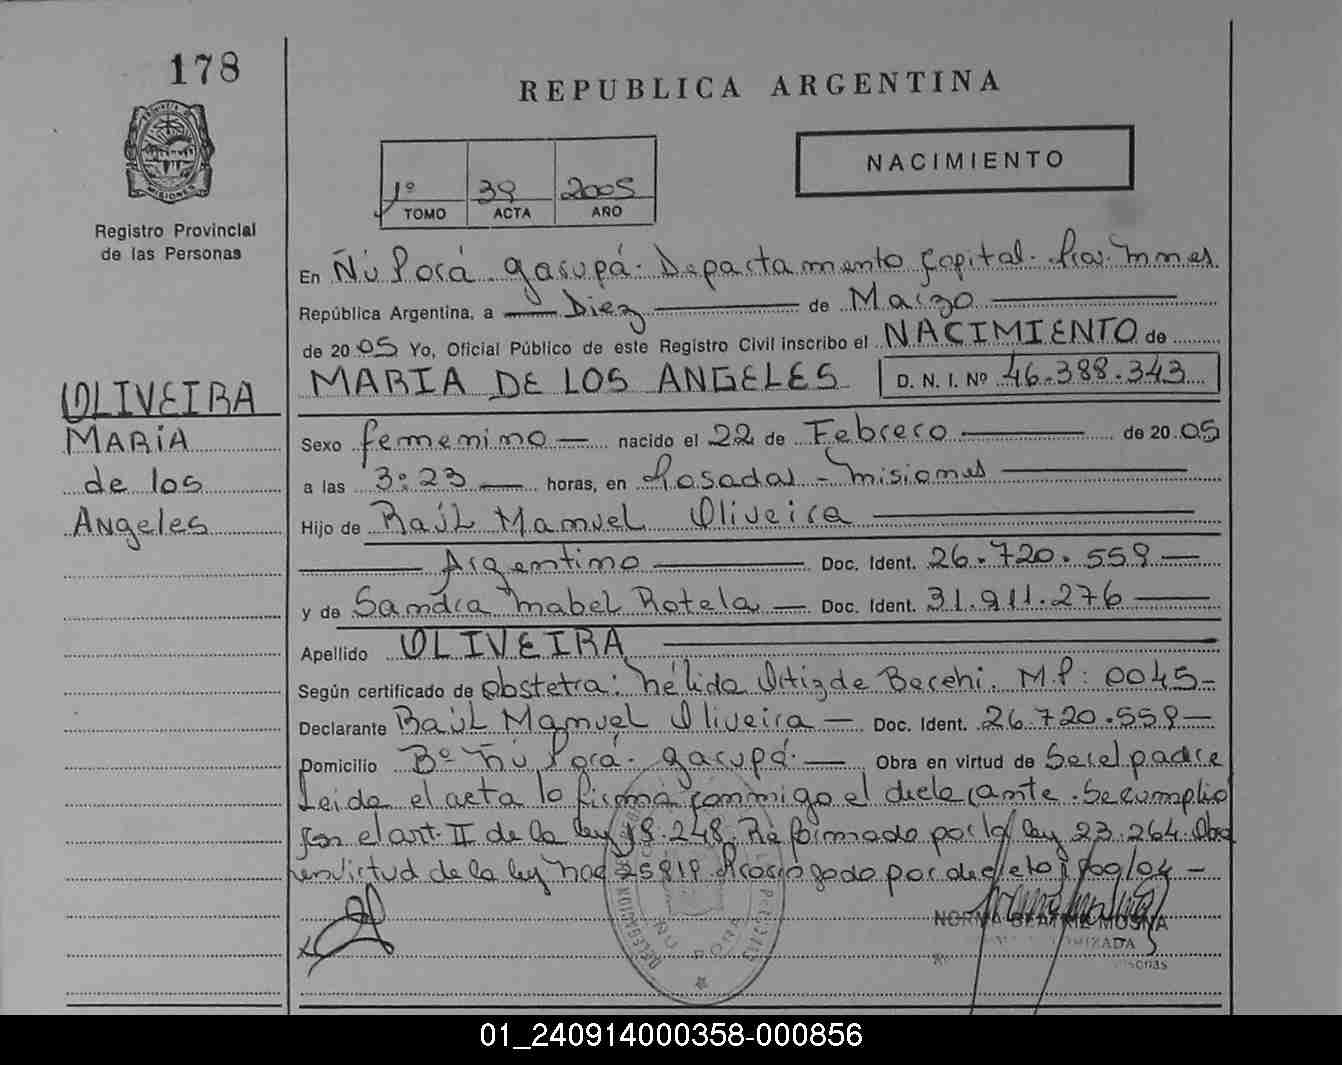 178
REPUBLICA ARGENTINA
NACIMIENTO
PROVINCIA DE MISIONES
Registro Provincial
de las Personas
1º 39 2005
TOMO ACTA AÑO
En Ñú Porá Garupá. Departamento Capital. Pcia. Mnes
República Argentina, a Diez de Marzo
de 2005 Yo, Oficial Público de este Registro Civil inscribo el NACIMIENTO de
MARIA DE LOS ANGELES D. N. I. Nº 46.388.343
OLIVEIRA
MARIA
de los
Angeles
Sexo femenino nacido el 22 de Febrero de 2005
a las 3:23 horas, en Posadas - Misiones
Hijo de Raúl Manuel Oliveira
Argentino Doc. Ident. 26.720.559
y de Sandra Mabel Rotela Doc. Ident. 31.911.276
Apellido OLIVEIRA
Según certificado de obstetra: Nélida Ortiz de M.P: 0045
Declarante Raúl Manuel Oliveira Doc. Ident. 26.720.559
Domicilio Bº Ñú Porá. Garupá. Obra en virtud de Ser el padre
Leida el acta la firma conmigo el declarante. Se cumplio
con el art. II de la ley 18.248. Reformado por la ley 23.264. Obra
en virtud de la ley nac 25819 Prorrogado por decreto 1800/04
DELEGACION
ÑU PORA
NORMA BEATRIZ MOSNA
01_240914000358-000856